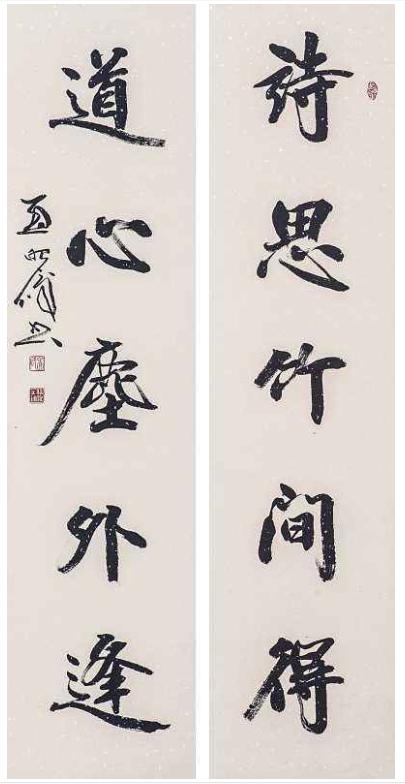 詩思竹间得
道心塵外逢